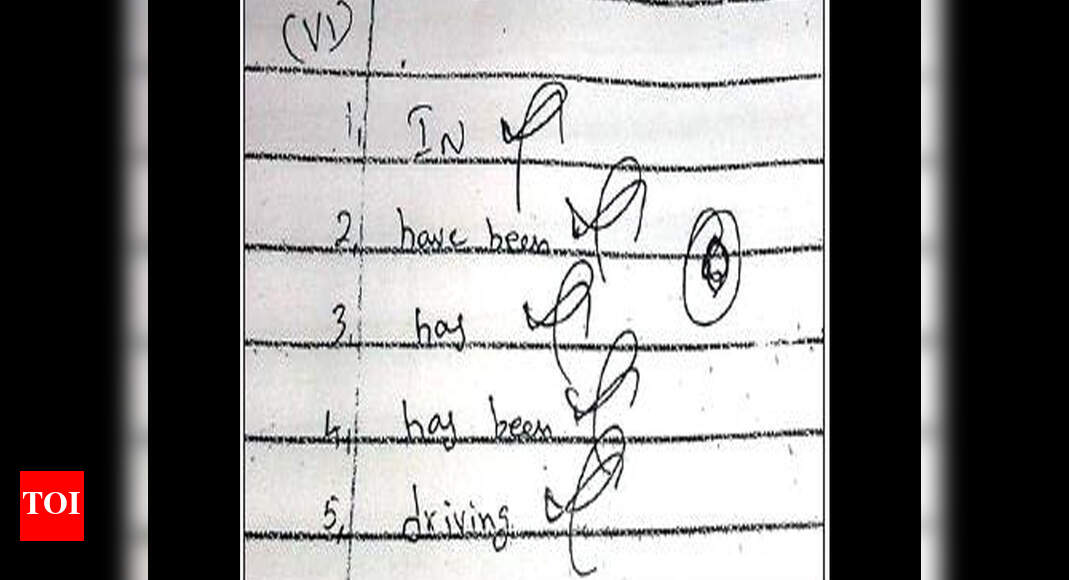 (VI)
1, IN
2, have been
3, has
4, has been
5, driving
TOI